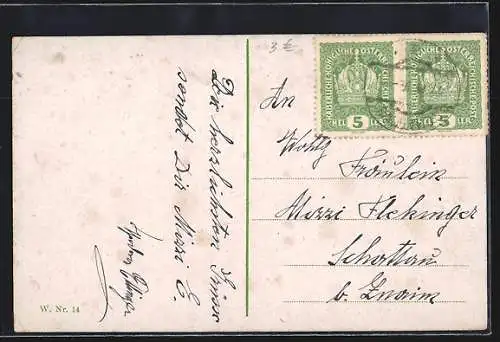 3 €
KAISERLICHE KÖNIGLICHE ÖSTERREICHISCHE POST
HELLER 5 HELLER
KAISERLICHE KÖNIGLICHE ÖSTERREICHISCHE POST
HELLER 5 HELLER
Die herzlichsten Grüsse
sendet Dir Mizzi E.
An
Wohlg
Fräulein
Mizzi
Schattau
b. Znaim
W. Nr. 14